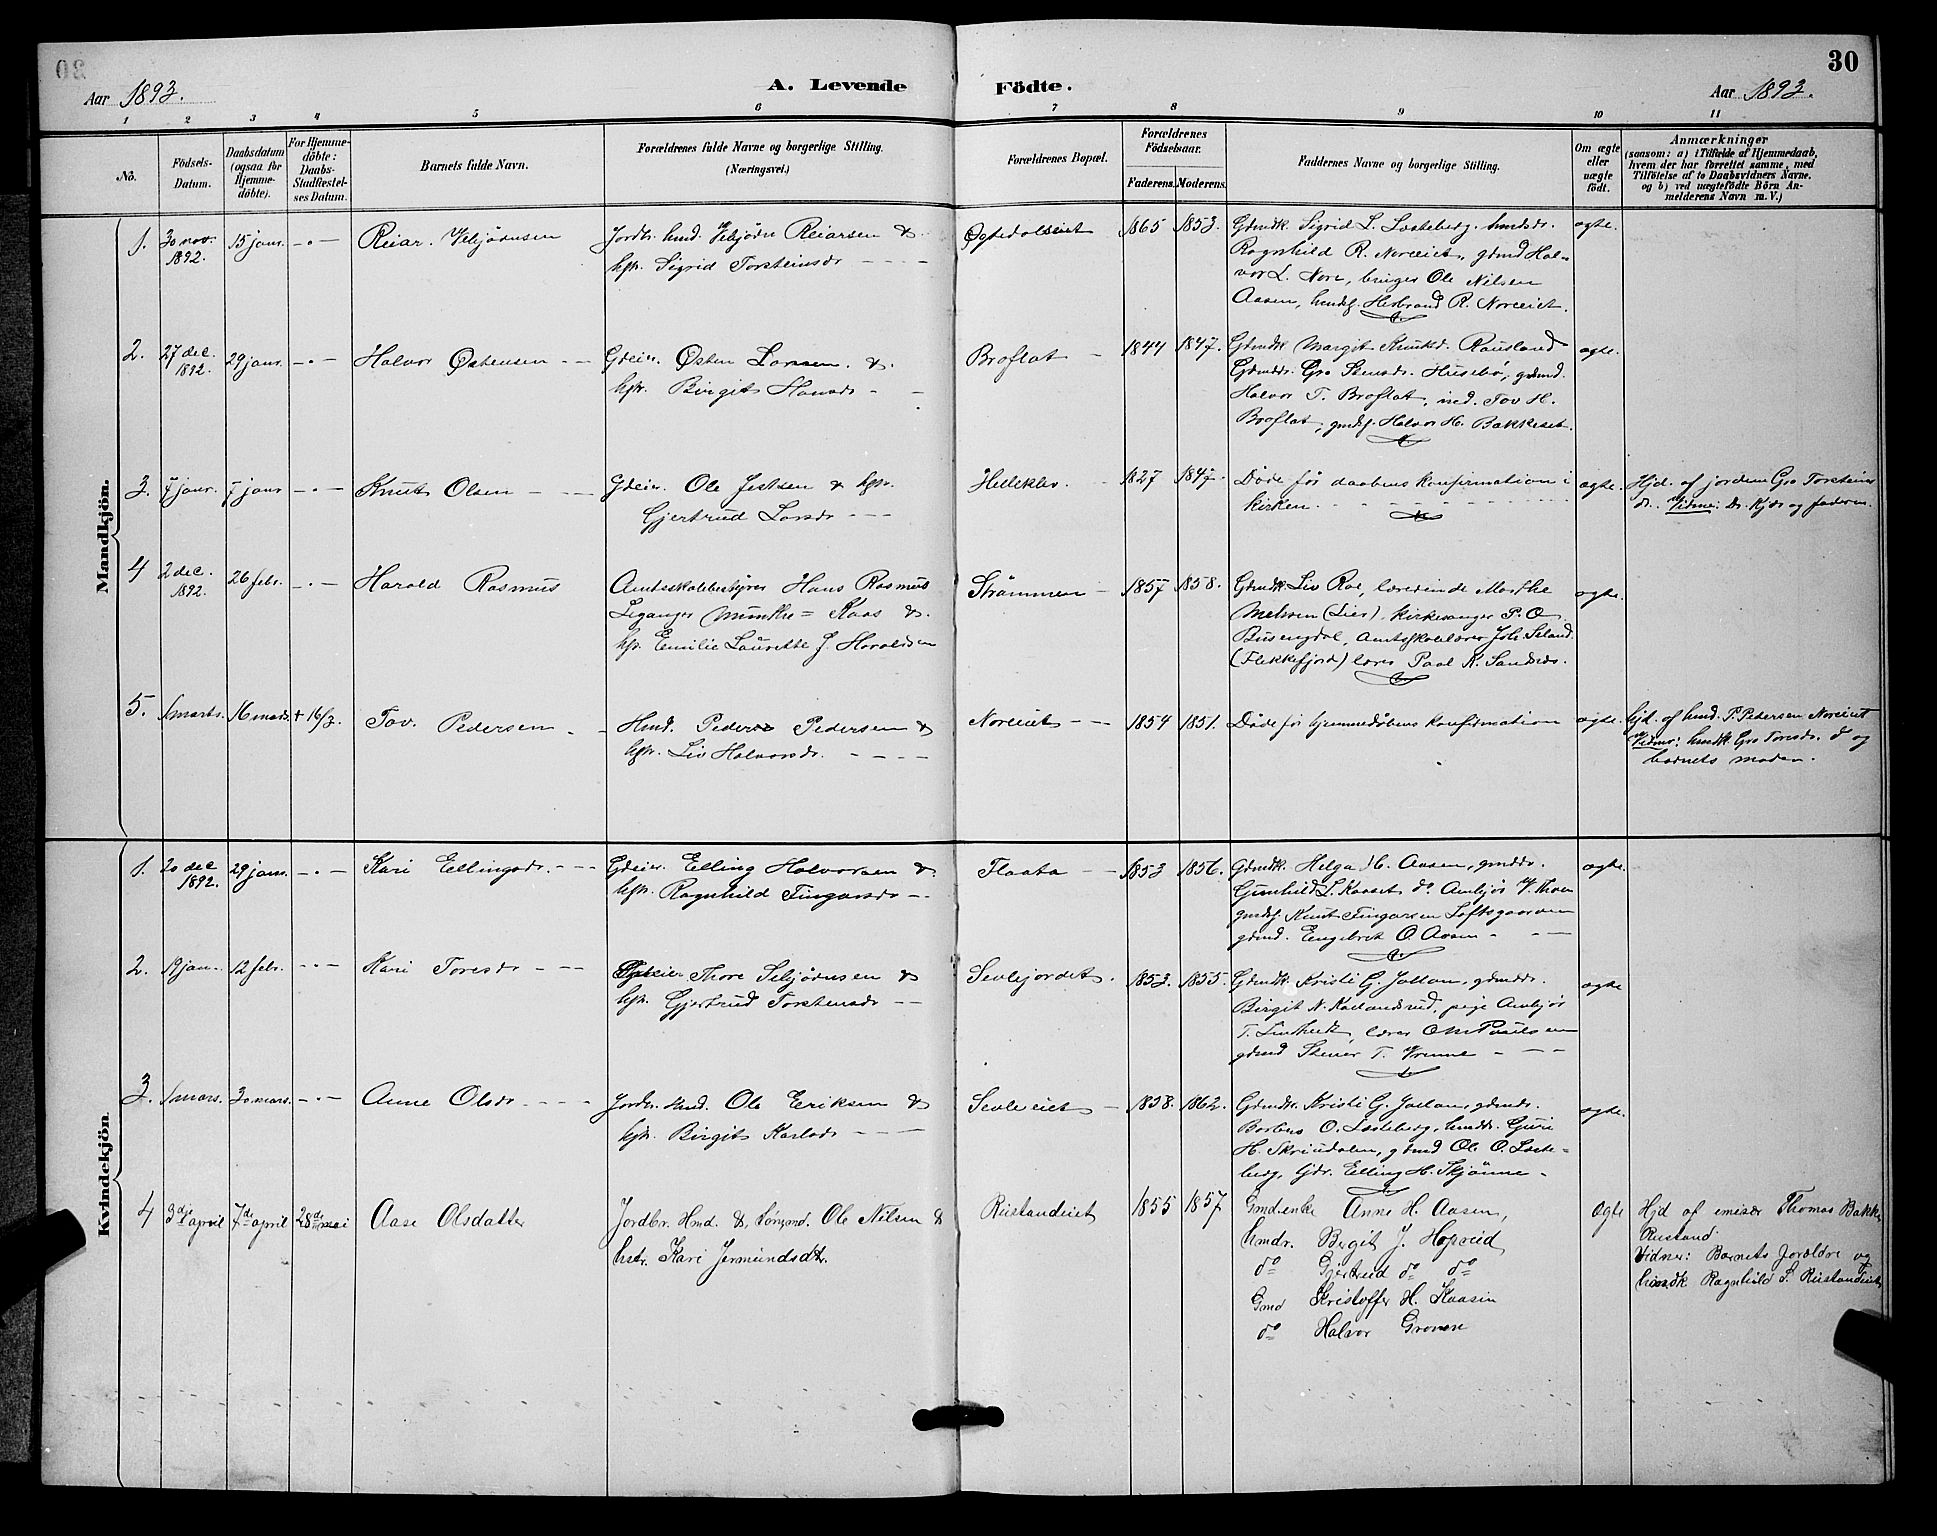 30
Aar 1893.
A. Levende Födte.
Aar 1893.
1 2 3 4 5 6 7 8 9 10 11
No.
Födsels-
Datum.
Daabsdatum
(ogsaa for
Hjemme-
döbte).
For Hjemme-
döbte:
Daabs-
Stadfæstel-
ses Datum.
Barnets fulde Navn.
Forældrenes fulde Navne og borgerlige Stilling.
(Næringsvei.)
Forældrenes Bopæl.
Forældrenes
Födselsaar.
Faderens. Moderens.
Faddernes Navne og borgerlige Stilling.
Om ægte
eller
uægte
födt.
Anmærkninger
(saasom: a) i Tilfælde af Hjemmedaab,
hvem der har forrettet samme, med
Tilföielse af to Daabsvidners Navne.
og b) ved uægtefödte Börn An-
melderens Navn m. V.)
Mandkjön.
1. 30 nov. 1892. 15 janr. Reiar. Vebjørnsen
Jordbr. hmd. Vebjørn Reiarsen &
hst. Sigrid Torsteinsdr
1865 1853.
Gdmdk. Sigrid L. Læsteberg, hmdsdr.
Ragnhild R. Noreeiet, gdmd Hal-
vor L. Nore, bruger Ole Nilsen
Aasen, hmdsf. Herbrand R. Noreeiet.
ægte.
2. 27 dec. 1892. 29 janr. Halvor Østensen
Gdeier. Østen Larsen &
hst. Birgit Hansdr
Broflat
1844 1847.
Gdmdk Margit Knutsd. Rausland
Gdmdr. Gro Stensdr. Husebø, gdmd.
Halvor T. Broflat, ind. Tov H.
Broflat, gmdsf. Halvor H. Bakkeset.
ægte.
3. 7 janr. 7 janr Knut Olsen
Gdeier. Ole Jestsen & hst.
Gjertrud Larsdr
1827 1847.
Døde før daabens konfirmation i
kirken.
ægte.
Hjd. af jordem Gro Torsteins
dr. Vidne: Dr. Kjær og faderen.
4 2 dec. 1892. 26 febr. Harald Rasmus
Amtsskolebestyrer Hans Rasmus
Leganger Munthe = Kaas &
hst. Emilie Laurette J. Haraldsen
Strømmen
1857 1858.
Gdmdk Liv Roe, lærerinde Marthe
Mehren (Lier), kirkesanger P. O
Busengdal, Amtsskolelærer Joh. Seland
(Flekkefjord) lærer Paal K.
ægte.
5. 1 marts. 16 mars. + 16/3. Tov. Pedersen
Hmd. Peder Pedersen &
hst. Liv Halvorsdr.
Noreeiet
1854 1851.
Døde før hjemmedåbens konfirmation
ægte.
hjd. af hmd. P. Pedersen Noreeiet
Vidner: hmdk Gro Toresdr. do og
barnets moder.
Kvindekjön.
1. 20 dec 1892. 29 janr. Kari Ellingsdr.
Gdeier. Elling Halvorsen &
hst. Ragnhild Fingarsdr
Flaata
1853 1856.
Gdmdk. Helga H. Aasen, gmddr.
Gunhild L. Kaaset do Ambjør
gmdsf. Knut Fingarsen Loftsgaarden
gdmd. Engebret O. Aasen
ægte.
2. 19 jan. 12 febr. Kari Toresdr
Gdeier Thore Sebjørnsen &
hst. Gjertrud Torstensdr
Sevlejordet.
1853. 1855.
Gdmdk. Kristi G. Joltan, gdmddr.
Birgit N. Kaalandsrud, pige Ambjør
T. lærer O
gdmd Stener T. Vrenne
ægte
3. 1 mars. 30 mars. Anne Olsdr
Jordbr. hmd. Ole Eriksen &
hst. Birgit Karlsdr
Sevleeiet
1838. 1862.
Gdmdk. Kristi G. Joltan, gdmdr.
Barbro O. Læsteberg, hmddr. Guri
H. Skrindalen, gdmd Ole O. Læste-
berg, Gdr. Elling H. Skjønne
ægte.
4 3die april 7de april 28de mai Aase Olsdatter
Jordbr. Hmd. & Tømmd. Ole Nilsen &
hstr. Kari Jermundsdtr.
Rustandeiet
1855 1857
Gmd.enke Anne H. Aasen,
hmdr. Bergit J. Hopreid
do Gjertrud do do
Gmd Kristoffer H. Kaasin
do Halvor Groven
Ogte
Hjd af emisær Thomas Bakke
Rustand
Vidner: Barnets forældre og
hmdk Ragnhild S. Rustandeiet